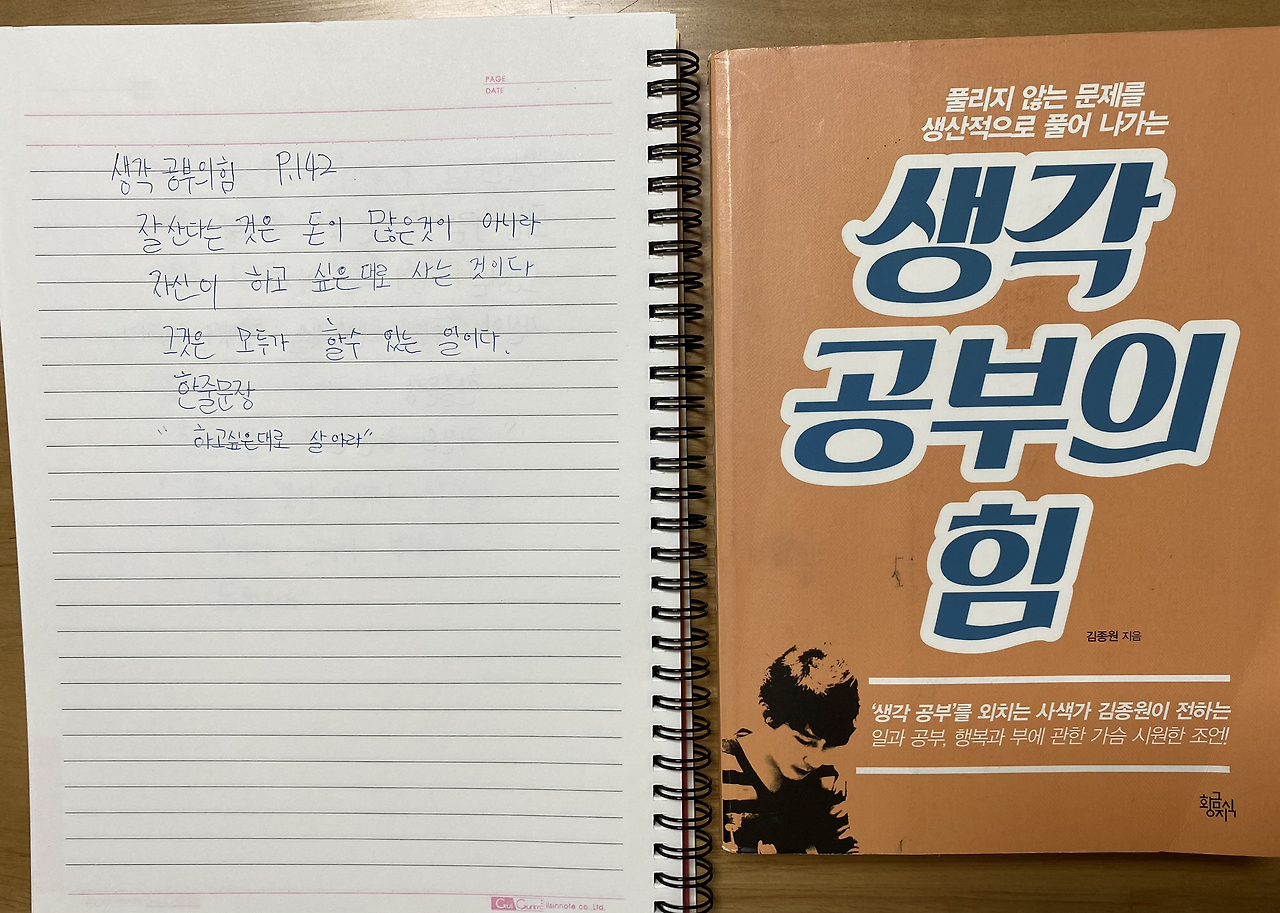 PAGE
DATE
생각 공부의 힘 P.142
잘 산다는 것은 돈이 많은것이 아니라
자신이 하고 싶은대로 사는 것이다
그것은 모두가 할수 있는 일이다.
한줄문장
"하고싶은대로 살아라"
Gui Gurim ilsinnote co.,Ltd.
풀리지 않는 문제를
생산적으로 풀어 나가는
생각
공부의
힘
김종원 지음
'생각 공부'를 외치는 사색가 김종원이 전하는
일과 공부, 행복과 부에 관한 가슴 시원한 조언!
황금지식